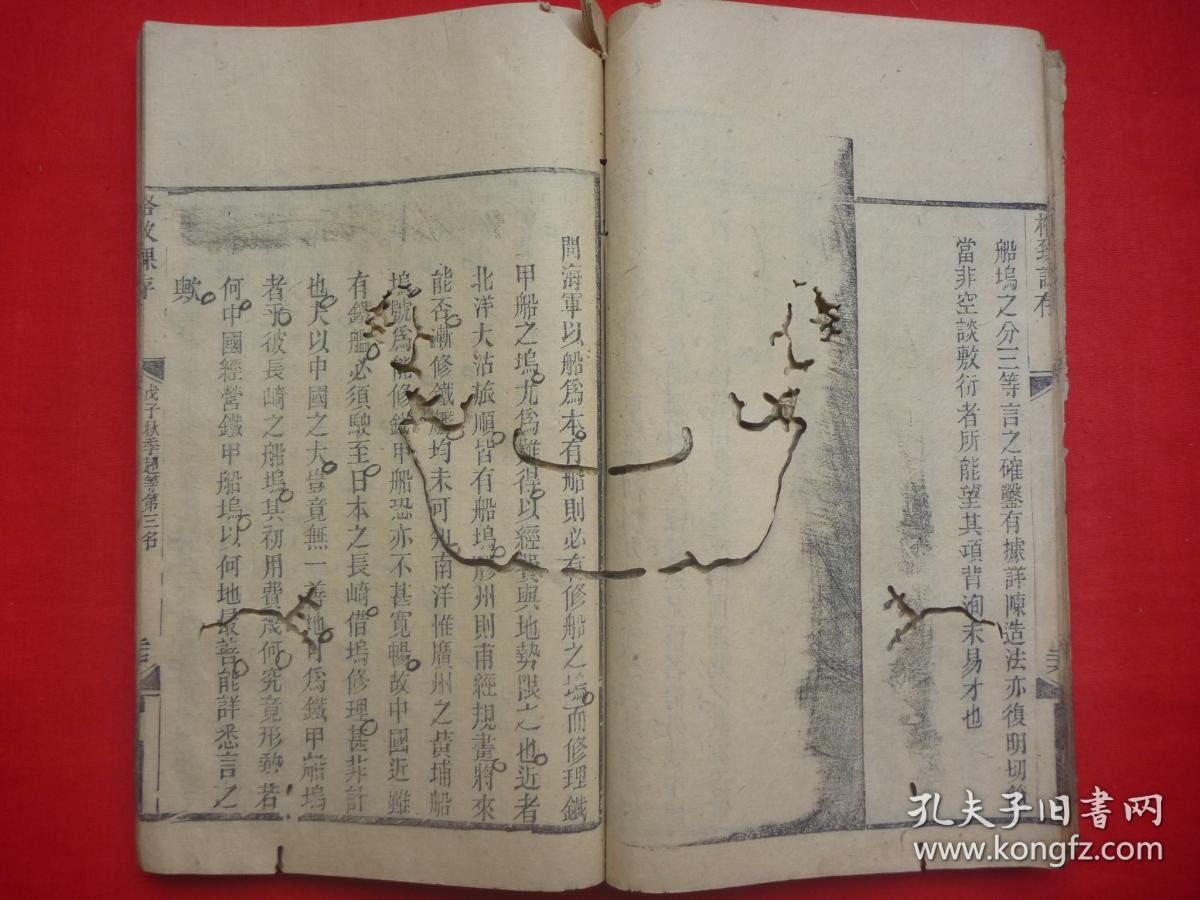 船塢之分三等言之確鑿有據詳陳造法亦復明切
當非空談敷衍者所能望其項背洵未易才也
問海軍以船爲本有船則必有修船之塢而修理鐵
甲船之塢尤爲難得以經費與地勢限之也近者
北洋大沽旅順皆有船塢膠州則南經規畫將來
能否漸修鐵艦均未可知南洋惟廣州之黃埔船
塢號爲能修鐵甲船恐亦不甚寬暢故中國近雖
有鐵艦必須駛至日本之長崎借塢修理甚非計
也夫以中國之大豈竟無一善地可爲鐵甲船塢
者乎彼長崎之船塢其初用費幾何究竟形勢若
何中國經營鐵甲船塢以何地最善能詳悉言之
歟
戊子秋季超等第三名
孔夫子旧书网
www.kongfz.com